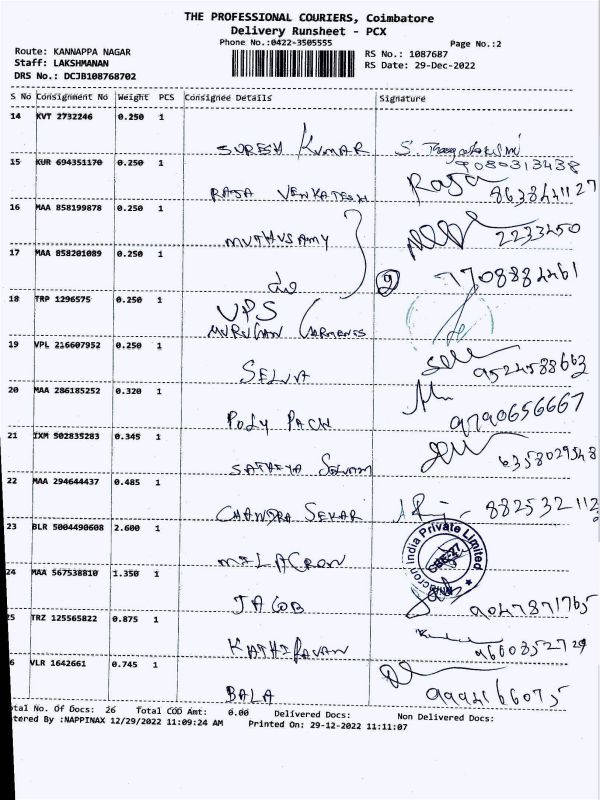 THE PROFESSIONAL COURIERS, Coimbatore
Delivery Runsheet - PCX
Phone No.:0422-3505555
Page No.:2
Route: KANNAPPA NAGAR
RS No.: 1087687
Staff: LAKSHMANAN
RS Date: 29-Dec-2022
DRS No.: DCJB108768702
S No Consignment No Weight PCS Consignee Details Signature
14 KVT 2732246 0.250 1
SURESH KUMAR S.
9080313438
15 KUR 694351170 0.250 1
RAJA VENKATESH Raja
16 MAA 858199878 0.250 1
MUTHUSAMY 2233450
17 MAA 858201089 0.250 1
do 2 7708884461
18 TRP 1296575 0.250 1
UPS
MURUGAN GARMENTS
19 VPL 216607952 0.250 1
SELVA 9524588663
20 MAA 286185252 0.320 1
POLY PACK 9790656667
21 IXM 502835283 0.345 1
SATHIYA SELVAM 6358029548
22 MAA 294644437 0.485 1
CHANDRA SEKAR 882532112
23 BLR 5004490608 2.600 1
MILACRON
India Private Limited
24 MAA 567538810 1.350 1
JACOB 9047871765
25 TRZ 125565822 0.875 1
KATHIRAVAN 9660352729
6 VLR 1642661 0.745 1
BALA
otal No. Of Docs: 26 Total COD Amt: 0.00 Delivered Docs: Non Delivered Docs:
tered By :NAPPINAX 12/29/2022 11:09:24 AM Printed On: 29-12-2022 11:11:07